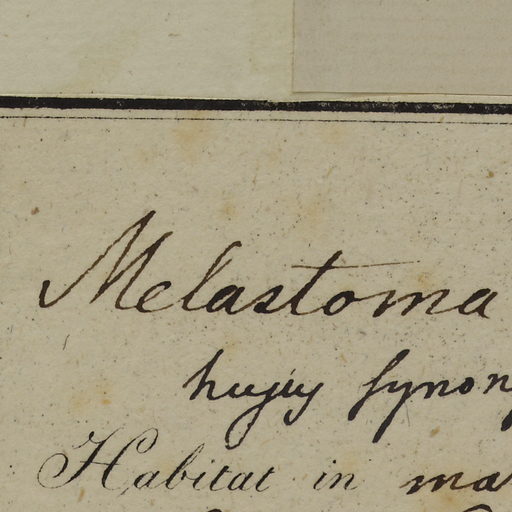 Melastoma
hujus synon
Habitat in ma